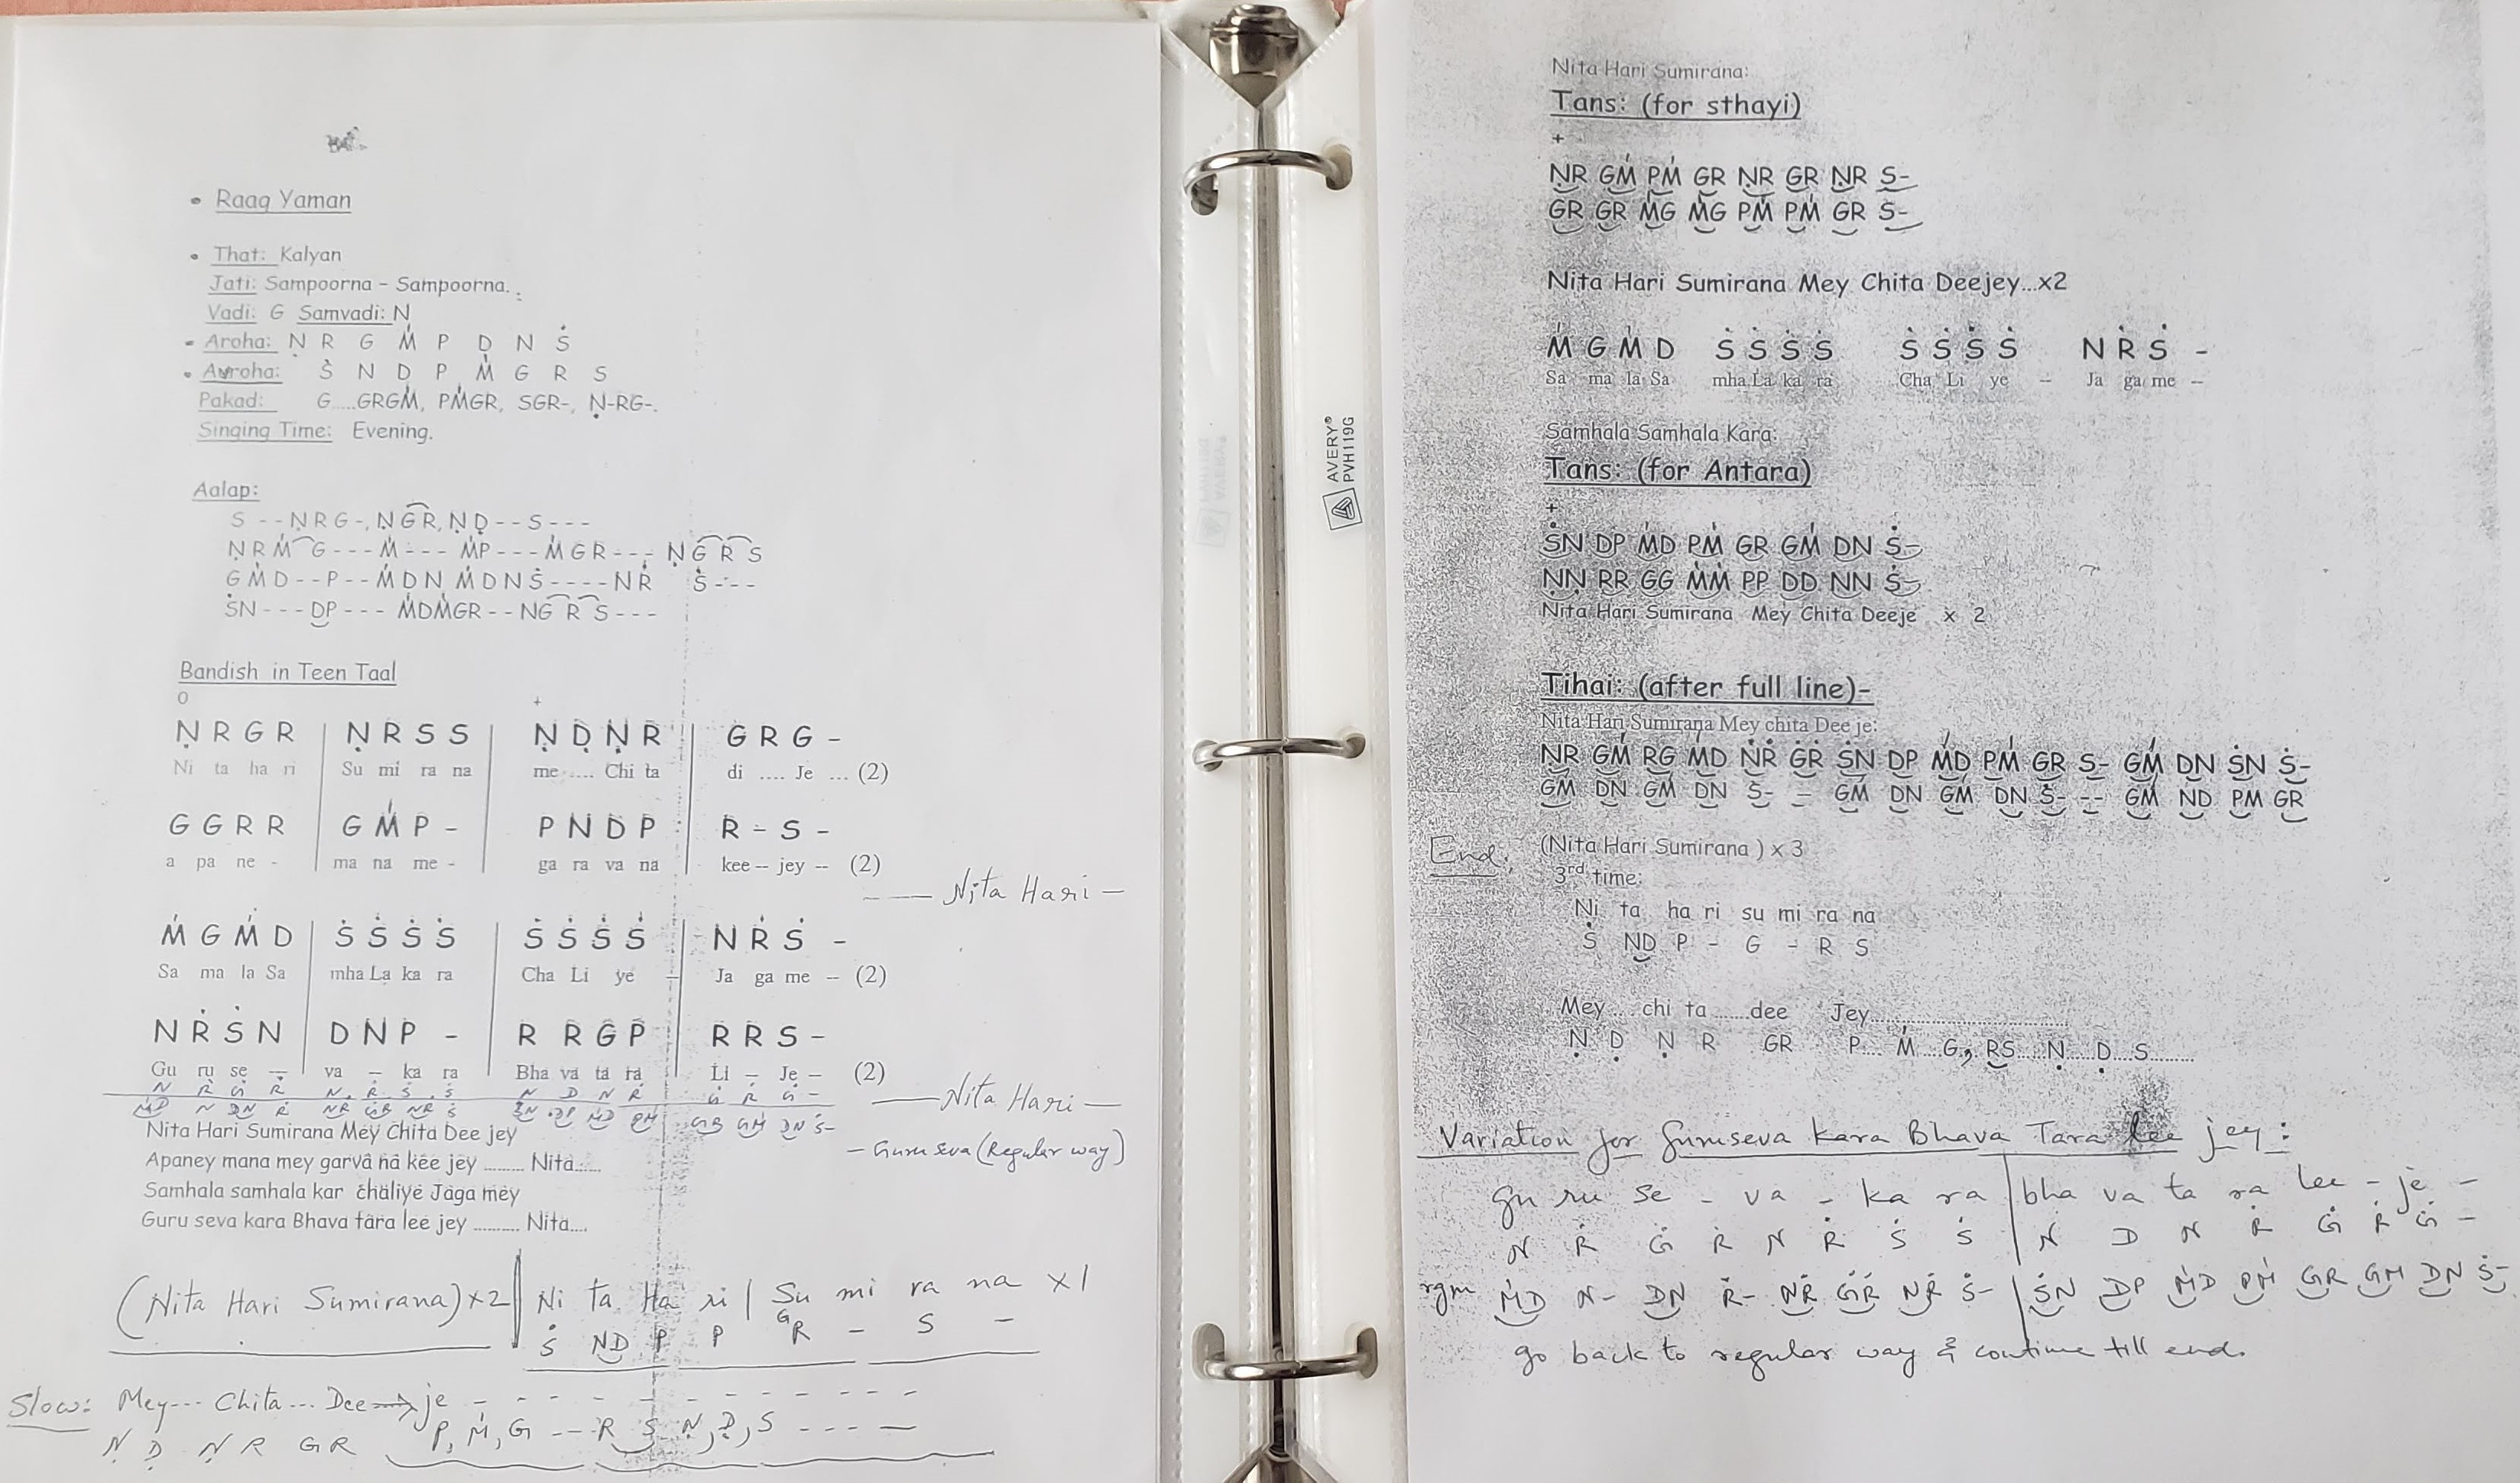 Raag Yaman
That: Kalyan
Jati: Sampoorna - Sampoorna.
Vadi: G Samvadi: N
Aroha: Ṇ R G Ḿ P D N Ṡ
Avroha: Ṡ N D P Ḿ G R S
Pakad: G....GRGḾ, PḾGR, SGR-, Ṇ-RG-.
Singing Time: Evening.
Aalap:
S - - Ṇ R G -, Ṇ G R, Ṇ Ḍ - - S - - -
Ṇ R Ḿ G - - - Ḿ - - - ḾP - - - Ḿ G R - - - Ṇ G R S
G Ḿ D - - P - - Ḿ D N Ḿ D N Ṡ - - - - N Ṙ Ṡ - - -
ṠN - - - DP - - - ḾDḾGR - - NG R S - - -
Bandish in Teen Taal
0 +
Ṇ R G R | Ṇ R S S | Ṇ Ḍ Ṇ R | G R G -
Ni ta ha ri Su mi ra na me .... Chi ta di .... Je ... (2)
G G R R | G Ḿ P - | P N D P | R - S -
a pa ne - ma na me - ga ra va na kee -- jey -- (2)
— — Nita Hari —
Ḿ G Ḿ D | Ṡ Ṡ Ṡ Ṡ | Ṡ Ṡ Ṡ Ṡ | N Ṙ Ṡ -
Sa ma la Sa mha La ka ra Cha Li ye – Ja ga me -- (2)
N Ṙ Ṡ N | D N P - | R R G P | R R S -
Gu ru se — va – ka ra Bha va ta ra Li – Je – (2)
N Ṙ Ġ Ṙ N Ṙ Ṡ Ṡ N D N Ṙ Ġ Ṙ Ġ -
— Nita Hari —
ḾD N DN Ṙ NṘ ĠṘ NṘ Ṡ ṠN DP ḾD PḾ GR GḾ DN Ṡ-
Nita Hari Sumirana Mey Chita Dee jey
— Guru Seva (Regular way)
Apaney mana mey garva na kee jey ......... Nita.....
Samhala samhala kar chaliye Jaga mey
Guru seva kara Bhava tara lee jey .......... Nita....
(Nita Hari Sumirana) x2 || Ni ta Ha ri | Su mi ra na x1
Ṡ ND P P GR - S -
Slow: Mey--- Chita... Dee → je - - - - - - - - - - -
Ṇ Ḍ Ṇ R GR P, Ḿ, G --- R S Ṇ, Ḍ, S - - - -
AVERY®
PVH119G
Nita Hari Sumirana:
Tans: (for sthayi)
+
ṆR GḾ PḾ GR ṆR GR ṆR S-
GR GR ḾG ḾG PḾ PḾ GR S-
Nita Hari Sumirana Mey Chita Deejey...x2
Ḿ G Ḿ D Ṡ Ṡ Ṡ Ṡ Ṡ Ṡ Ṡ Ṡ N Ṙ Ṡ -
Sa ma la Sa mha La ka ra Cha Li ye – Ja ga me --
Samhala Samhala Kara:
Tans: (for Antara)
+
ṠN DP ḾD PḾ GR GḾ DN Ṡ-
ṆṆ RR GG ḾḾ PP DD NN Ṡ-
Nita Hari Sumirana Mey Chita Deeje x 2
Tihai: (after full line)-
Nita Hari Sumirana Mey chita Dee je:
ṆR GḾ RG ḾD NṘ ĠṘ ṠN DP ḾD PḾ GR S- GḾ DN ṠN Ṡ-
GḾ DN GḾ DN Ṡ- -- GḾ DN GḾ DN Ṡ- -- GḾ ND PM GR
End: (Nita Hari Sumirana ) x 3
3rd time:
Ni ta ha ri su mi ra na
Ṡ ND P - G - R S
Mey.... chi ta ......dee Jey................................
Ṇ Ḍ Ṇ R GR P.... Ḿ...G,..RS....Ṇ....Ḍ...S........
Variation for Guruseva Kara Bhava Tara lee jey:
gu ru se - va - ka ra | bha va ta ra lee - je -
N Ṙ Ġ Ṙ N Ṙ Ṡ Ṡ | N D N Ṙ Ġ Ṙ Ġ -
rgm ḾD N- DN Ṙ- NṘ ĠṘ NṘ Ṡ- | ṠN DP ḾD PḾ GR GḾ DN Ṡ-
go back to regular way & continue till end.